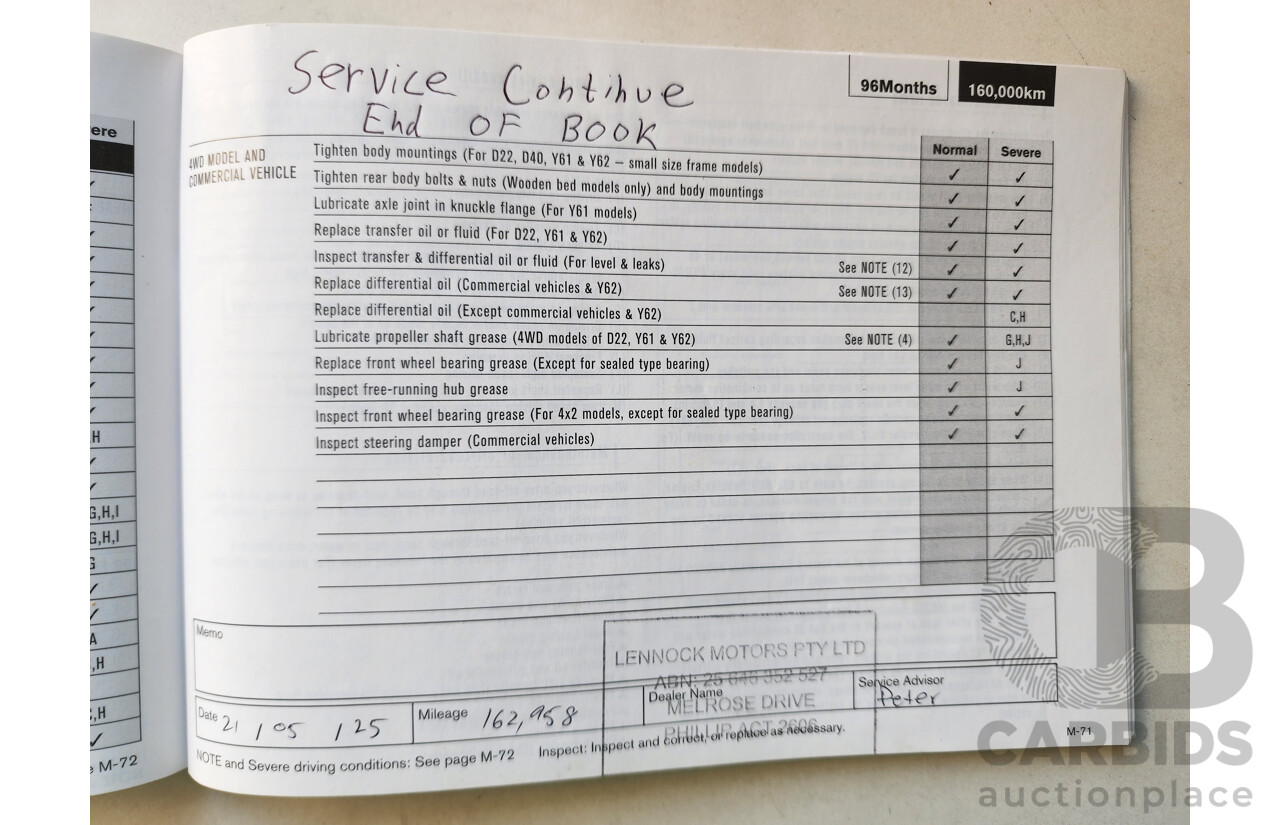 Service Continue
End OF BOOK
96Months 160,000km
4WD MODEL AND
COMMERCIAL VEHICLE
Normal Severe
Tighten body mountings (For D22, D40, Y61 & Y62 – small size frame models) ✓ ✓
Tighten rear body bolts & nuts (Wooden bed models only) and body mountings ✓ ✓
Lubricate axle joint in knuckle flange (For Y61 models) ✓ ✓
Replace transfer oil or fluid (For D22, Y61 & Y62) ✓ ✓
Inspect transfer & differential oil or fluid (For level & leaks) See NOTE (12) ✓ ✓
Replace differential oil (Commercial vehicles & Y62) See NOTE (13) ✓ ✓
Replace differential oil (Except commercial vehicles & Y62) C,H
Lubricate propeller shaft grease (4WD models of D22, Y61 & Y62) See NOTE (4) ✓ G,H,J
Replace front wheel bearing grease (Except for sealed type bearing) ✓ J
Inspect free-running hub grease ✓ J
Inspect front wheel bearing grease (For 4x2 models, except for sealed type bearing) ✓ ✓
Inspect steering damper (Commercial vehicles) ✓ ✓
Memo
LENNOCK MOTORS PTY LTD
ABN: 25 646 352 527
MELROSE DRIVE
PHILLIP ACT 2606
Date 21 / 05 / 25
Mileage 162,958
Dealer Name
Service Advisor
Peter
NOTE and Severe driving conditions: See page M-72 Inspect: Inspect and correct, or replace as necessary.
M-71
ere
H
G,H,I
G,H,I
G
A
,H
,H
M-72
CB
CARBIDS
auctionplace